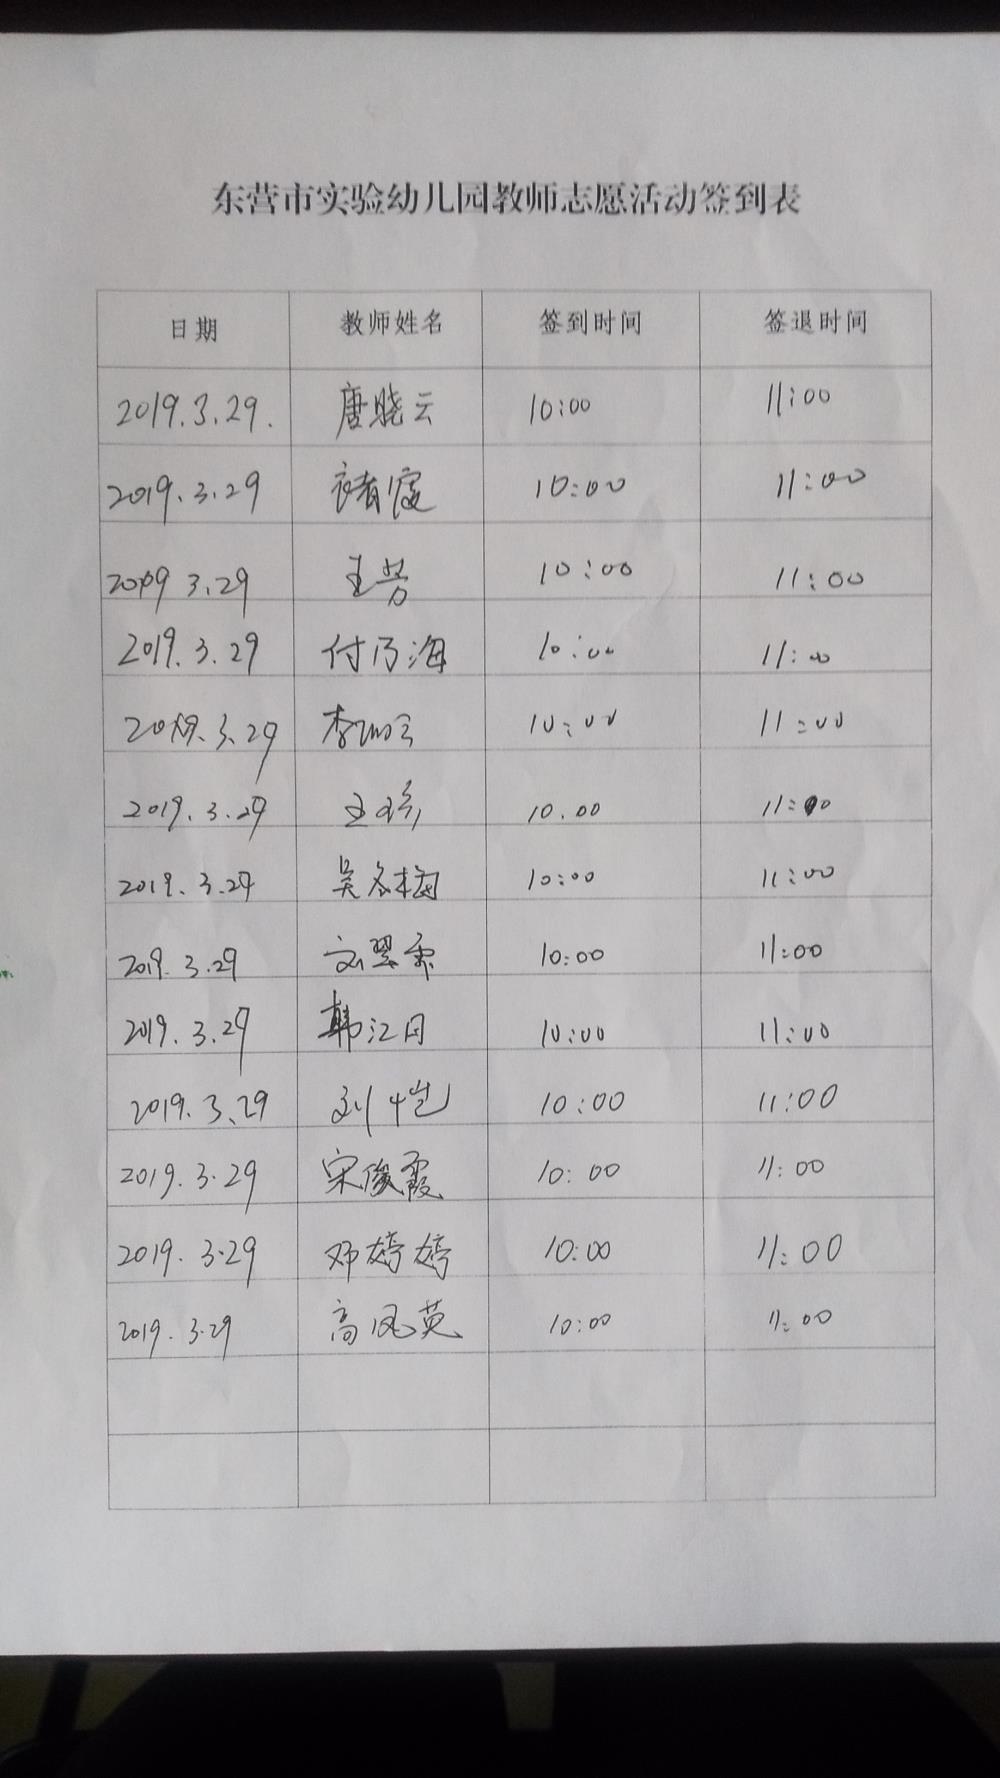 东营市实验幼儿园教师志愿活动签到表
日期 教师姓名 签到时间 签退时间
2019.3.29. 唐晓云 10:00 11:00
2019.3.29 10:00 11:00
2019 3.29 10:00 11:00
2019.3.29 付乃海 10:00 11:00
2019.3.29 李 10:00 11:00
2019.3.29 王 10.00 11:00
2019.3.29 吴冬梅 10:00 11:00
2019.3.29 10:00 11:00
2019.3.29 韩江月 10:00 11:00
2019.3.29 刘 10:00 11:00
2019.3.29 宋俊霞 10:00 11:00
2019.3.29 邓婷婷 10:00 11:00
2019.3.29 高凤英 10:00 11:00